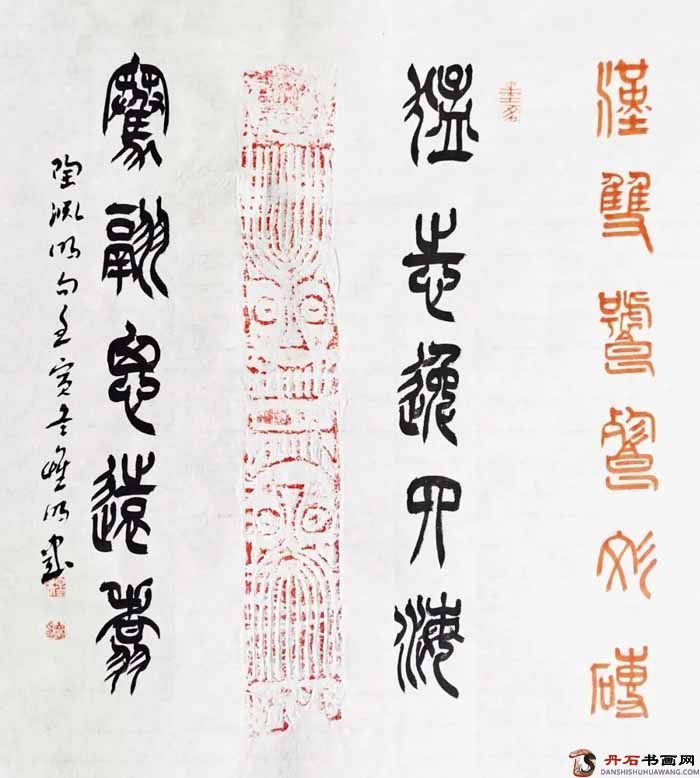 漢雙饕餮紋磚
壬寅
猛志逸四海
騫翮思遠翥
陶淵明句壬寅冬唯明書
丹石书画网
DANSHISHUHUAWANG.COM